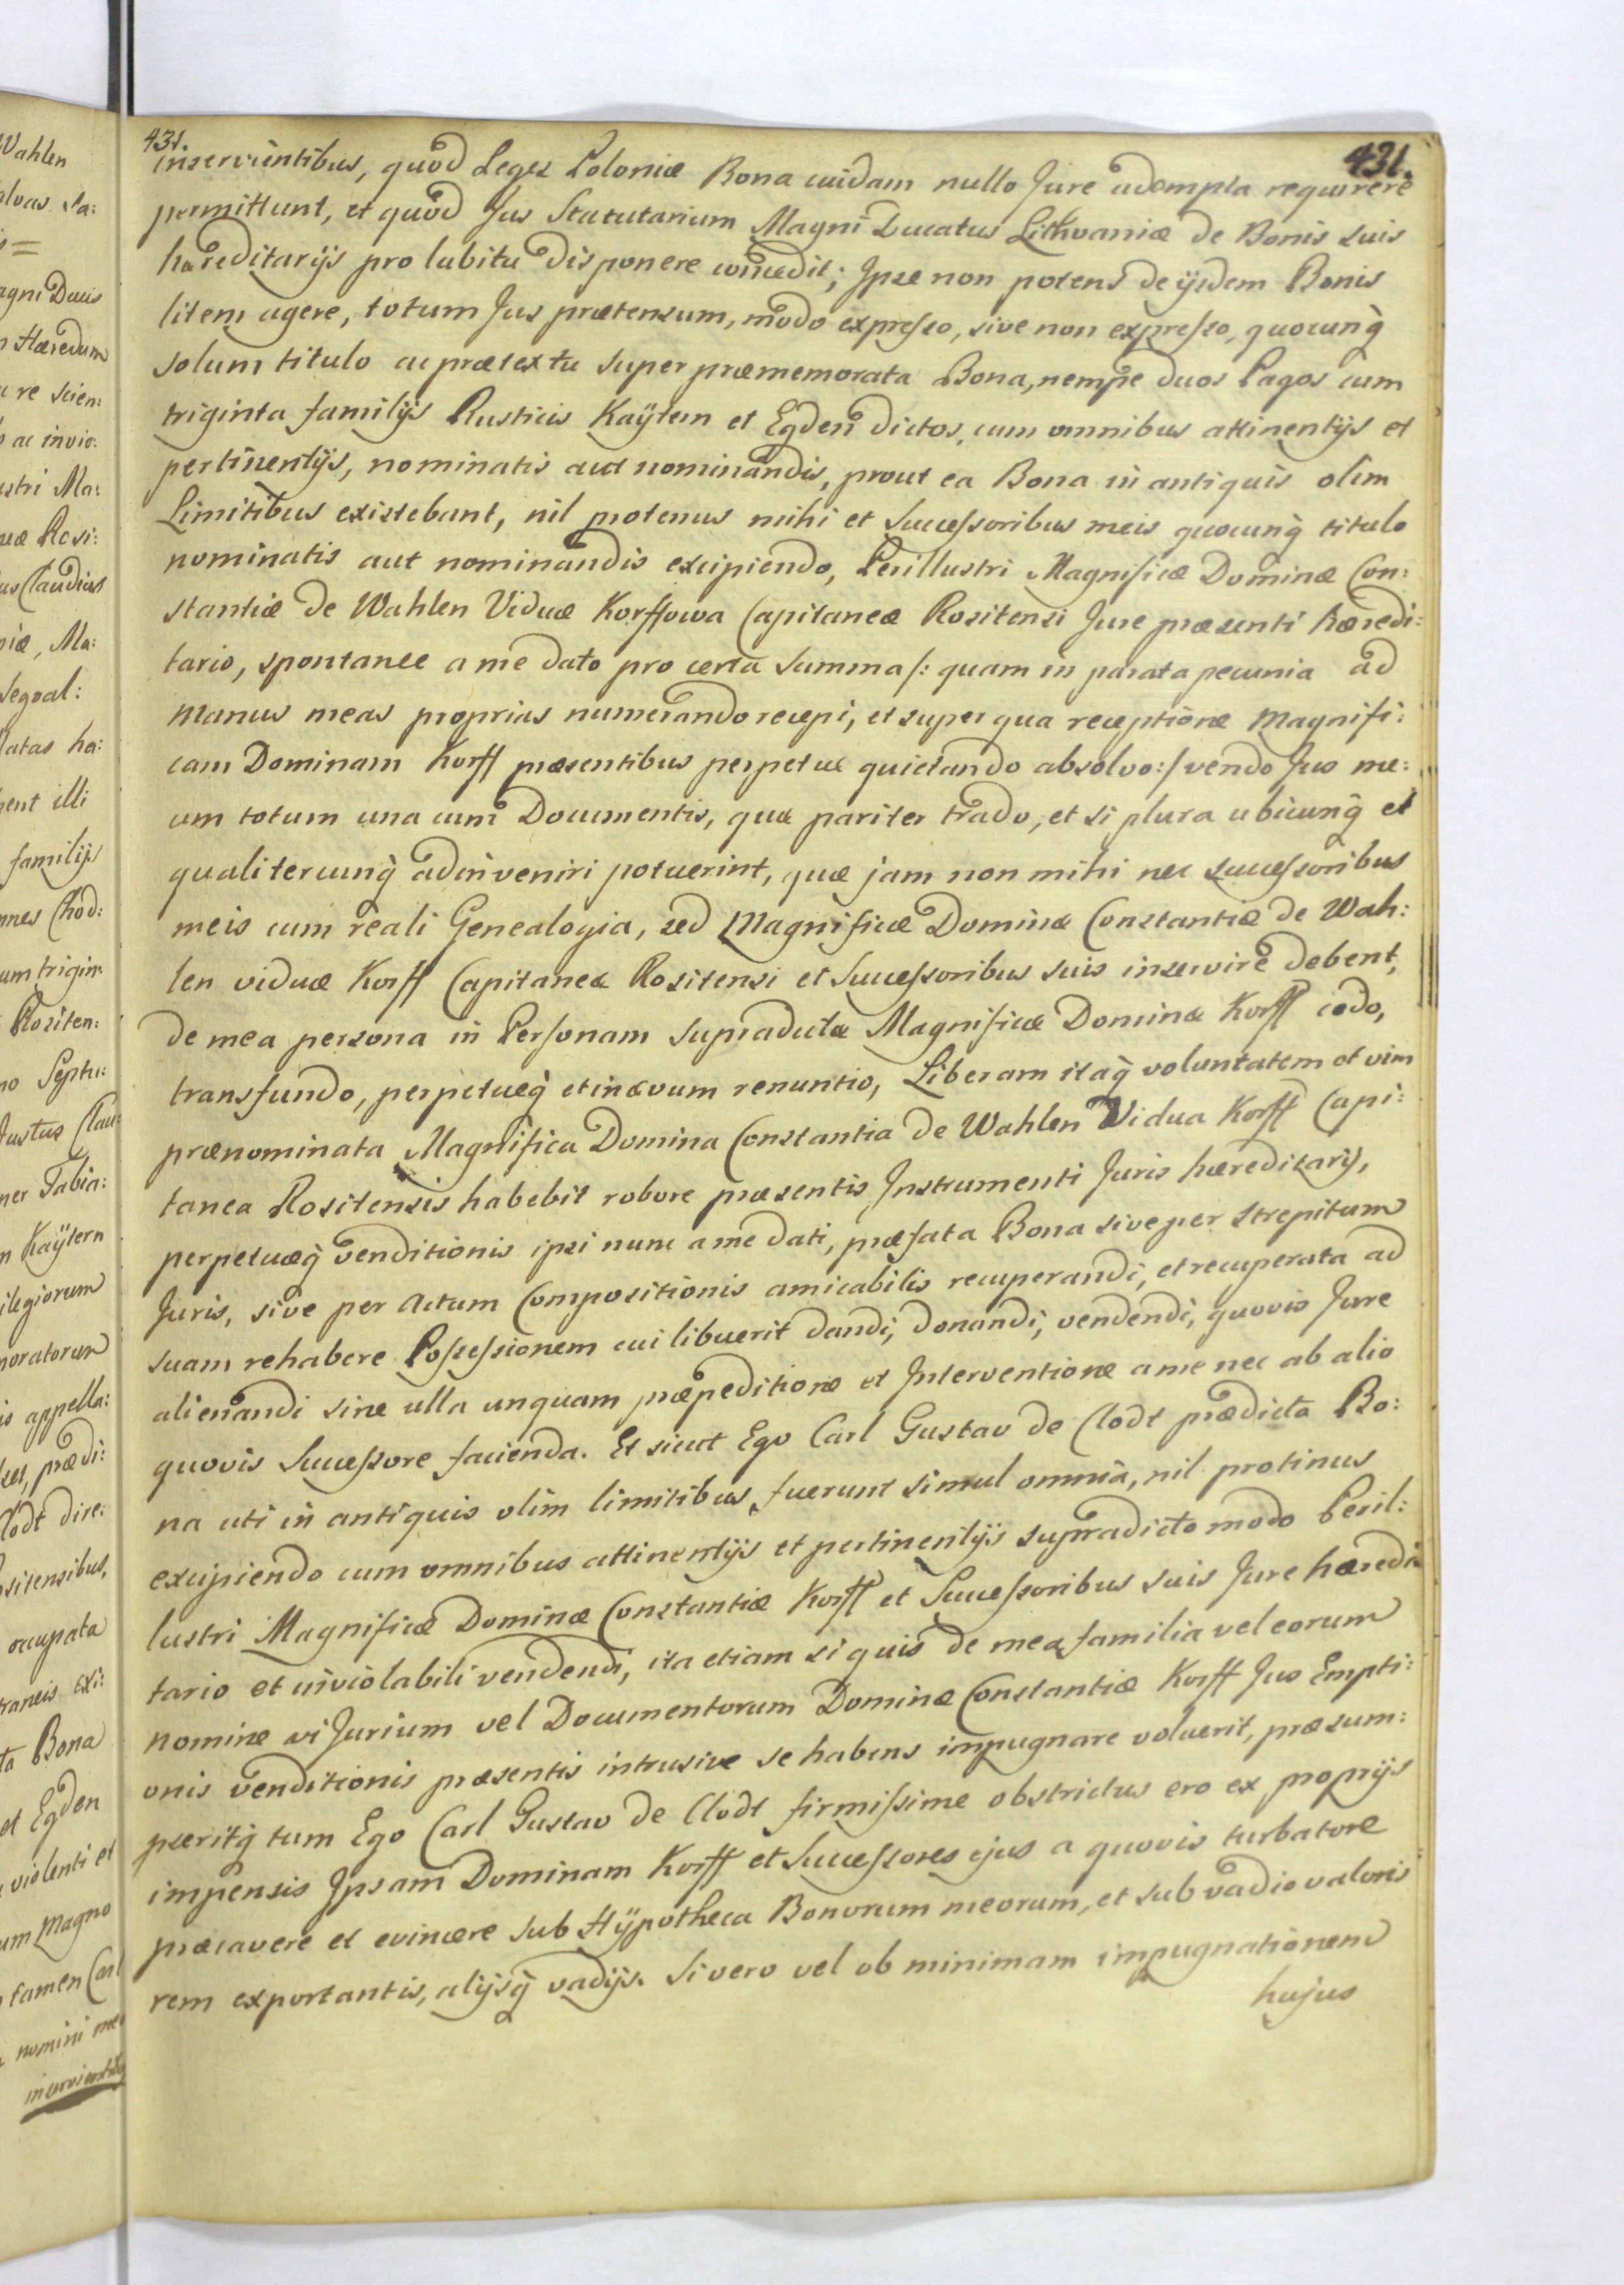 431.
431.
inservientibus, quod Leges Poloniæ Bona cuidam nullo Jure adempta requirere
permittunt, et quod Jus Statutarium Magni Ducatus Lithvaniæ de Bonis suis
hæreditarijs pro lubitu disponere concedit; Ipse non potens de ijsdem Bonis
litem agere, totum Jus prætensum, modo expresso, sive non expresso, quocunq̀
solum titulo ac prætextu super præmemorata Bona, nempe duos Pagos cum
triginta familijs Rusticis Kaÿtern et Egden dictos, cum omnibus attinentijs et
pertinentijs, nominatis aut nominandis, prout ea Bona in antiquis olim
Limitibus existebant, nil protenus mihi et Successoribus meis quocunq̀ titulo
nominatis aut nominandis excipiendo, Perillustri Magnificæ Dominæ Con:
stantiæ de Wahlen Viduæ Korffowa Capitaneæ Rositensi Jure præsenti hæredi:
tario, spontanee a me dato pro certa Summa /: quam in parata pecunia ad
manus meas proprias numerando recepi, et super qua receptione Magnifi:
cam Dominam Korff præsentibus perpetue quietando absolvo:/ vendo Jus me:
um totum una cum Documentis, quæ pariter trado, et si plura ubicunq̀ et
qualitercunq̀ adinveniri potuerint, quæ jam non mihi nec Successoribus
meis cum reali Genealogia, sed Magnificæ Dominæ Constantiæ de Wah:
len viduæ Korff Capitaneæ Rositensi et Successoribus suis inservire debent,
de mea persona in Personam supradictæ Magnificæ Dominæ Korff cedo,
transfundo, perpetueq̀ et in ævum renuntio, Liberam itaq̀ voluntatem et vim
prænominata Magnifica Domina Constantia de Wahlen Vidua Korff Capi:
tanea Rositensis habebit robore præsentis Instrumenti Juris hæreditarij,
perpetuæq̀ venditionis ipsi nunc a me dati, præfata Bona sive per Strepitum
Juris, sive per Actum Compositionis amicabilis recuperandi, et recuperata ad
suam rehabere Possessionem cui libuerit dandi, donandi, vendendi, quovis Jure
alienandi sine ulla unquam præpeditione et Interventione a me nec ab alio
quovis Successore facienda. Et sicut Ego Carl Gustav de Clodt prædicta Bo:
na uti in antiquis olim limitibus fuerunt simul omnia, nil protinus
excipiendo cum omnibus attinentijs et pertinentijs supradicto modo Peril:
lustri Magnificæ Dominæ Constantiæ Korff et Successoribus suis Jure hæredi
tario et inviolabili vendendi, ita etiam si quis de mea familia vel eorum
nomine vi Jurium vel Documentorum Dominæ Constantiæ Korff Jus Empti:
onis venditionis præsentis intrusive se habens impugnare voluerit, præsum:
pseritq̀ tum Ego Carl Gustav de Clodt firmissime obstrictus ero ex proprijs
impensis Ipsam Dominam Korff et Successores ejus a quovis turbatore
præcavere et evincere sub Hÿpotheca Bonorum meorum, et sub vadio valoris
rem exportantis, alijsq̀ vadijs. Si vero vel ob minimam impugnationem
hujus